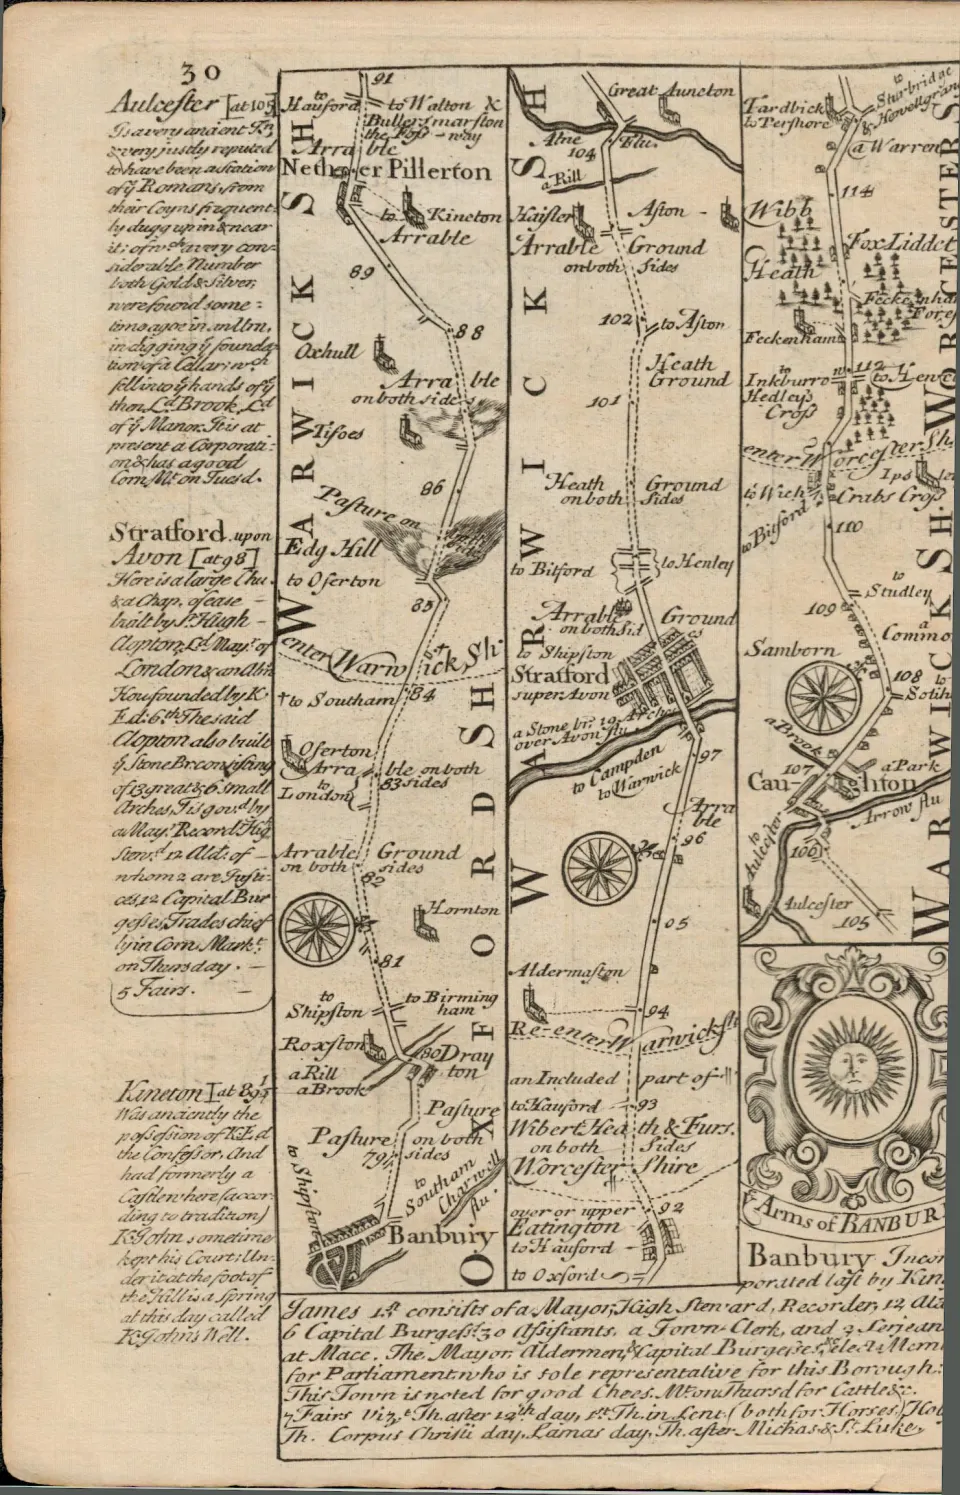 30
Aulcester [at 105]
Is a very ancient
& very justly reputed
to have been a station
of ye Romans, from
their Coyns frequent:
ly dugg up in & near
it: of wch a very con=
siderable Number
both Gold & Silver,
were found some=
time agoe in an Urn,
in digging ye founda
tion of a Cellar: wch
fell into ye hands of ye
then Ld. Brook, Ld
of ye Manor. It is at
present a Corporati=
on & has a good
Corn Mt. on Tuesd.
Stratford upon
Avon [at 98]
Here is a large Chu.
& a Chap. of ease
built by Sr. Hugh
Clopton, Ld. Mayr. of
London & an
Hou founded by K.
Ed: 6th. The said
Clopton also built
ye Stone Br consisting
of 13 great & 6 small
Arches, Tis gov.d by
a Mayr. Record: Hig
Stewd. 12 Ald: of
whom 2 are Justi=
ces, 12 Capital Bur
gesses, Trades chief
ly in Corn. Markt.
on Thursday.
5 Fairs.
Kineton [at 89½
Was anciently the
possession of K. Ed
the Confessor, And
had formerly a
Castle where (accor
ding to tradition)
K. John sometime
kept his Court: Un=
der it at the foot of
the Hill is a Spring
at this day called
K. John's Well.
91
to Hauford
to Walton &
Bullersmarston
the Foss-way
Arra ble
Nether Pillerton
to Kineton
Arrable
89
88
Oxhull
Arra ble
on both sides
Tisoes
86
Pasture on
both sides
Edg Hill
to Oserton
85
WARWICKSH
enter Warwick Shi
to Southam
84
Oserton
Arra ble on both
83 sides
to London
Arrable Ground
on both sides
82
Hornton
81
to Shipston
to Birming
ham
Roxston
80
Dray
ton
a Rill
a Brook
Pasture
Pasture on both
79 sides
to Shipston
to Southam
Charwell flu.
Banbury
OXFORDSH
Great Auncton
Alne
flu.
104
a Rill
Haisler
Aston
Arrable Ground
on both Sides
102
to Aston
Heath
Ground
101
Heath Ground
on both Sides
to Bitford
to Henley
Arrable Ground
on both Sid es
to Shipston
Stratford
super Avon
a Stone br. 19 Arches
over Avon flu.
to Campden
to Warwick
97
Arra
ble
96
95
Aldermaston
94
Re-enter Warwick Sh
an Included part of
to Hauford
93
Wibert Heath & Furs.
on both Sides
Worcester Shire
over or upper
Eatington
92
to Hauford
to Oxford
WARWICKSH
Tardbick
to Pershore
to Sturbridge
& Hewellgran
a Warren
114
Wibb
Heath
Fox Liddet
Feckenham
Fores
Feckenham
112
to Inkburro
to Hewe
Hedley's
Cross
enter Worcester Sh
to Wich
Ips ley
Crabs Cross
to Bitford
110
to Studley
109
a Commo
Samborn
108
to Solih
a Brook
107
a Park
Caughton
Arrow flu
to Aulcester
106
Aulcester
105
WORCESTERSH
WARWICKSH.
Arms of BANBUR
Banbury Incor
porated last by King
James 1st. consists of a Mayor, High Steward, Recorder, 12 Ald
6 Capital Burgess. 30 Assistants, a Town-Clerk, and 3 Serjean
at Mace. The Mayor, Aldermen, & Capital Burgesses, elect a Mem
for Parliament, who is sole representative for this Borough.
This Town is noted for good Chees. Mt. on Thursd for Cattle &c.
7 Fairs Viz.t Th. after 12th day, 1st Th. in Lent (both for Horses) Hol
Th. Corpus Christi day, Lamas day, Th. after Michas & St. Luke.